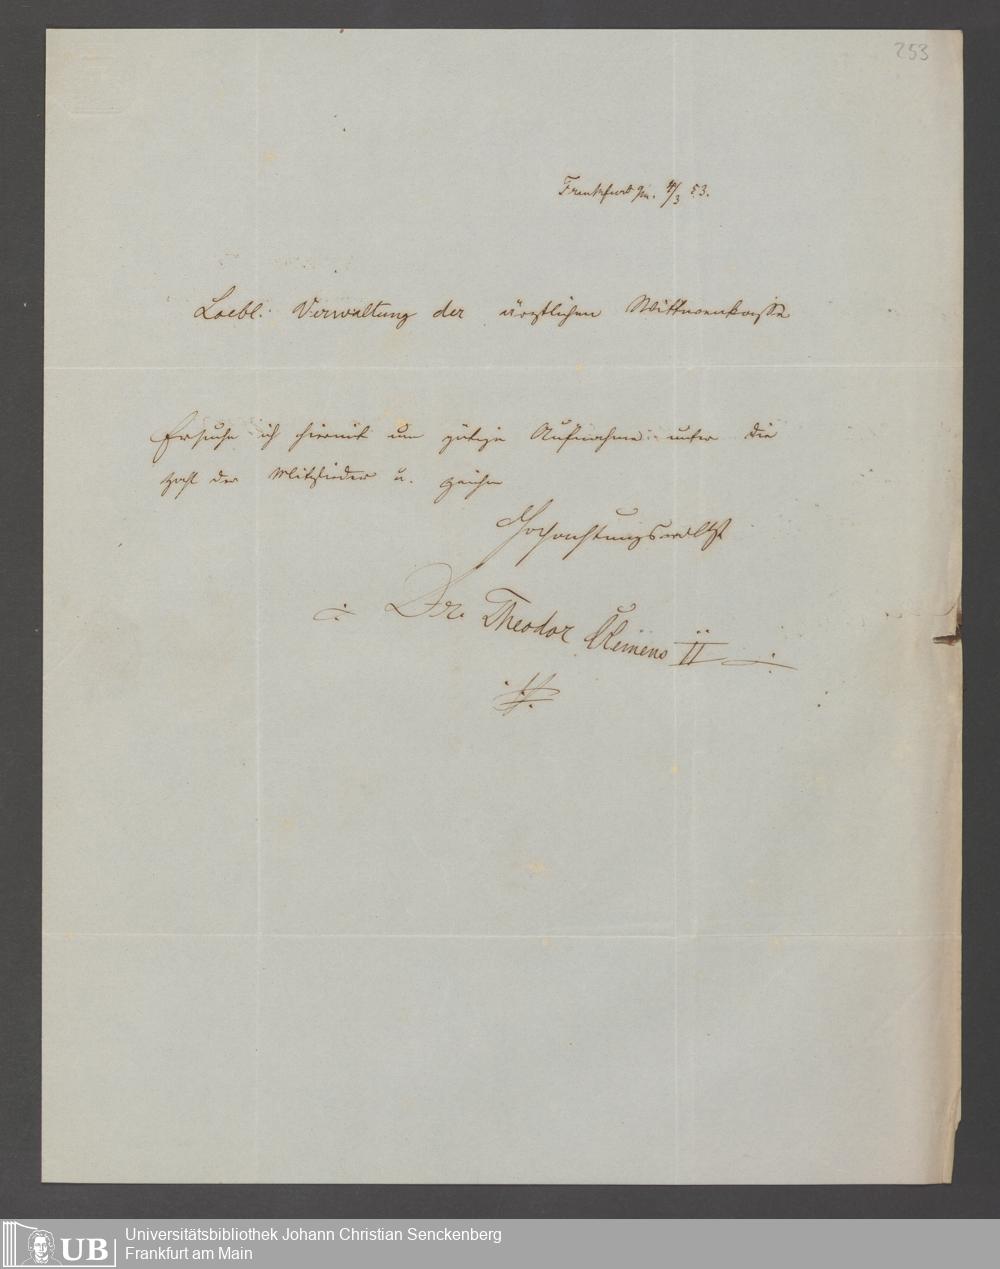 253
Frankfurt a/m. 4/3 53.
Loebl. Verwaltung der ärztlichen Wittwenkasse
Ersuche ich hiermit um gütige Aufnahme unter die
Zahl der Mitglieder u. zeichne
Hochachtungsvollst
Dr. Theodor Clemens II
UB
Universitätsbibliothek Johann Christian Senckenberg
Frankfurt am Main